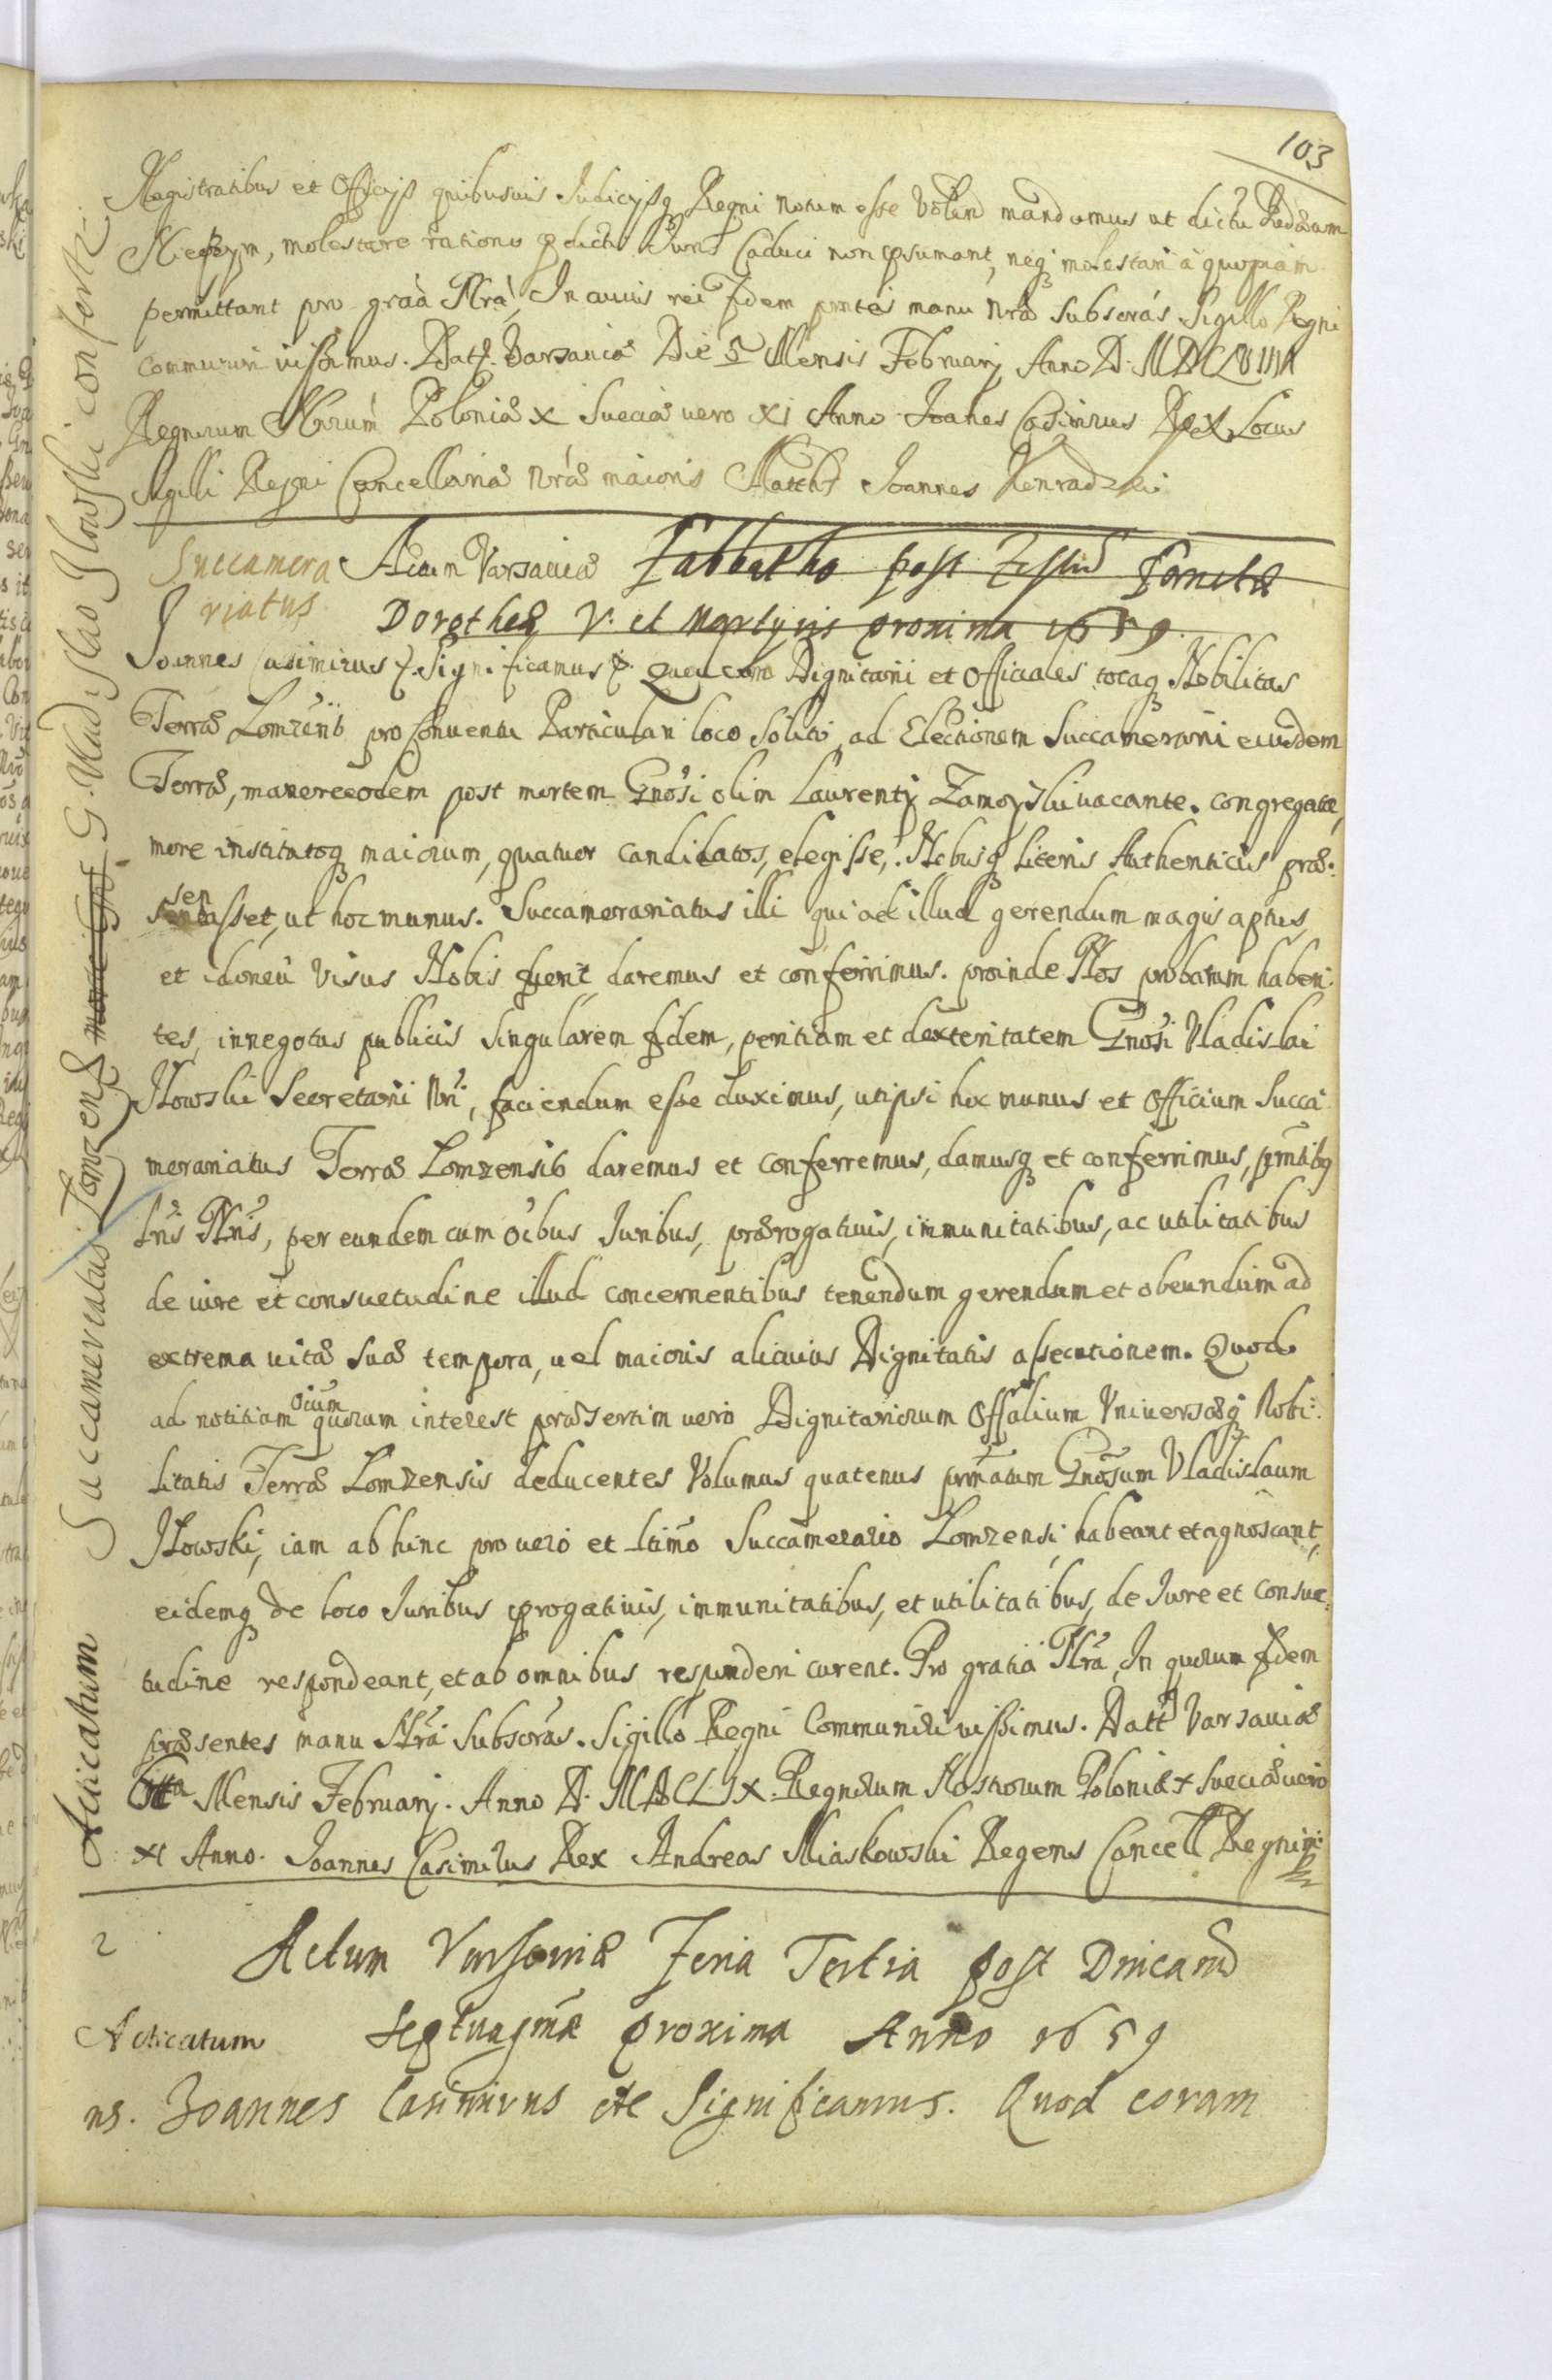 103
Magistratibus et Officijs quibusuis Iudicijsq Regni notum esse Volen mandamus ut dictu
molestare ratione pdicti Iuris Caduci non psumant, neq molestari à quopiam
permittant pro graã Nrã, In cuius rei fidem pntes manu nrã subscras Sigillo Regni
communiri iussimus. Datt. Varsaviæ Die 5 Mensis February Anno D. MDCLVIIII
Regnorum Nrorum Poloniæ X Sueciæ vero XI Anno Joanes Casimirus Rex Locus
Sigilli Regni Cancellariæ Nræ maioris Joannes
Succamera Actum Varsaviæ Sabbatho post Festum Sanctæ
riatus Dorotheæ V. et Martyris proxima 1659.
Joannes Casimirus & Significamus & Dignitarij et Officiales totaq Nobilitas
Terræ Lomzens pro Conventu Particulari loco solito ad Electionem Succamerarij eiusdem
Terræ, post mortem Gnosi olim Laurentij Zamoyski vacante. congregatæ,
more institutoq maiorum, quatuor candidatos, elegisse, Nobisq Literis Authenticis præ:
sentasset, ut hoc munus. Succamerariatus illi qui ad illud gerendum magis aptus,
et idoneũ Visus Nobis fuerit daremus et conferrimus. proinde Nos probatam haben:
tes, in negotijs publicis Singularem fidem, peritiam et dexteritatem Gnosi Vladislai
Ilowski Secretarij Nri, faciendum esse duximus, ut ipsi hoc munus et Officium Succa
merariatus Terræ Lomzensis daremus et conferremus, damusq et conferrimus, pntibq
Lris Nris, per eundem cum oibus Iuribus, prærogativis, immunitatibus, ac utilitatibus
de iure et consuetudine illud concernentibus tenendum gerendum et obeundum ad
extrema vitæ suæ tempora, vel maioris alicuius Dignitatis assecutionem. Quod
ad notitiam oium quorum interest præsertim vero Dignitariorum Offalium Vniversæq Nobi:
litatis Terræ Lomzensis deducentes Volumus quatenus prmatum Gnosum Vladislaum
Ilowski, iam ab hinc pro vero et ltimo Succamerario Lomzensi habeant et agnoscant,
eidemq de loco Iuribus progativis, immunitatibus, et utilitatibus, de Iure et Consue:
tudine respondeant, et ab omnibus responderi curent. Pro gratia Nrã, In quorum fidem
præsentes manu Nrã Subscras. Sigillo Regni Communiri iussimus. Datt Varsaviæ
Mensis February. Anno D. MDCLIX. Regnorum Nostrorum Poloniæ X Sueciæ vero
XI Anno. Joannes Casimirus Rex Andreas Miaskowski Regens Cancell Regni
2 Actum Varsaviæ Feria Tertia post Dnicam
Acticatum Septuagmæ proxima Anno 1659
ns. Joannes Casimirus etc Significamus. Quod coram
Acticatum Succamerariatus Lomzens G. Vladislao Ilowski confertr